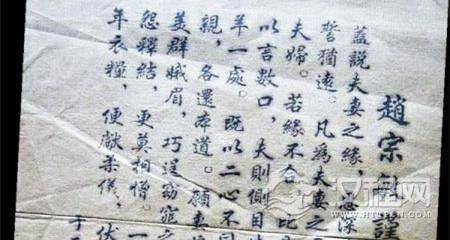 趙宗敏謹
蓋說夫妻之緣，恩深
誓猶遠。凡為夫妻之
夫婦。若緣不合，比
以言數口，夫則側目
羊一處。既以二心不同
親，各還本道。願妻
美群娥眉，巧逞窈窕之
怨釋結，更莫相憎。一
年衣糧，便獻柔儀，伏
于
汉程网